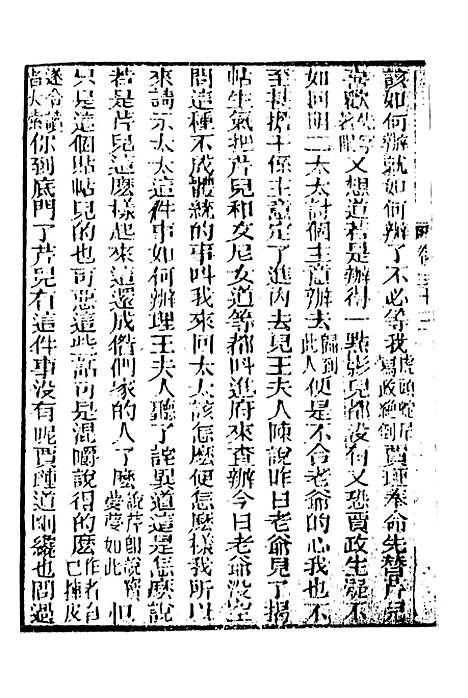 該如何辦就如何辦了不必等我虎頭蛇尾寫政絕倒賈璉奉命先替芹兒
喜歡先寫若聰又想道若是辦得一點影兒都沒有又恐賈政生疑不
如回明二太太討個主意辦去歸到此人便是不合老爺的心我也不
至甚擔干係主意定了進內去見王夫人陳說昨日老爺見了揭
帖生氣把芹兒和女尼女道等都叫進府來查辦今日老爺沒空
問這種不成體統的事叫我來回太太該怎麼便怎麼樣我所以
來請示太太這件事如何辦理王夫人聽了詫異道這是怎麼說
若是芹兒這麼樣起來這還成偺們家的人了麼說芹即說寶夢夢如此但
只是這個貼帖兒的也可惡這些話可是混嚼說得的麼作者自己揍皮
遂令讀者大索你到底問了芹兒有這件事沒有呢賈璉道剛纔也問過